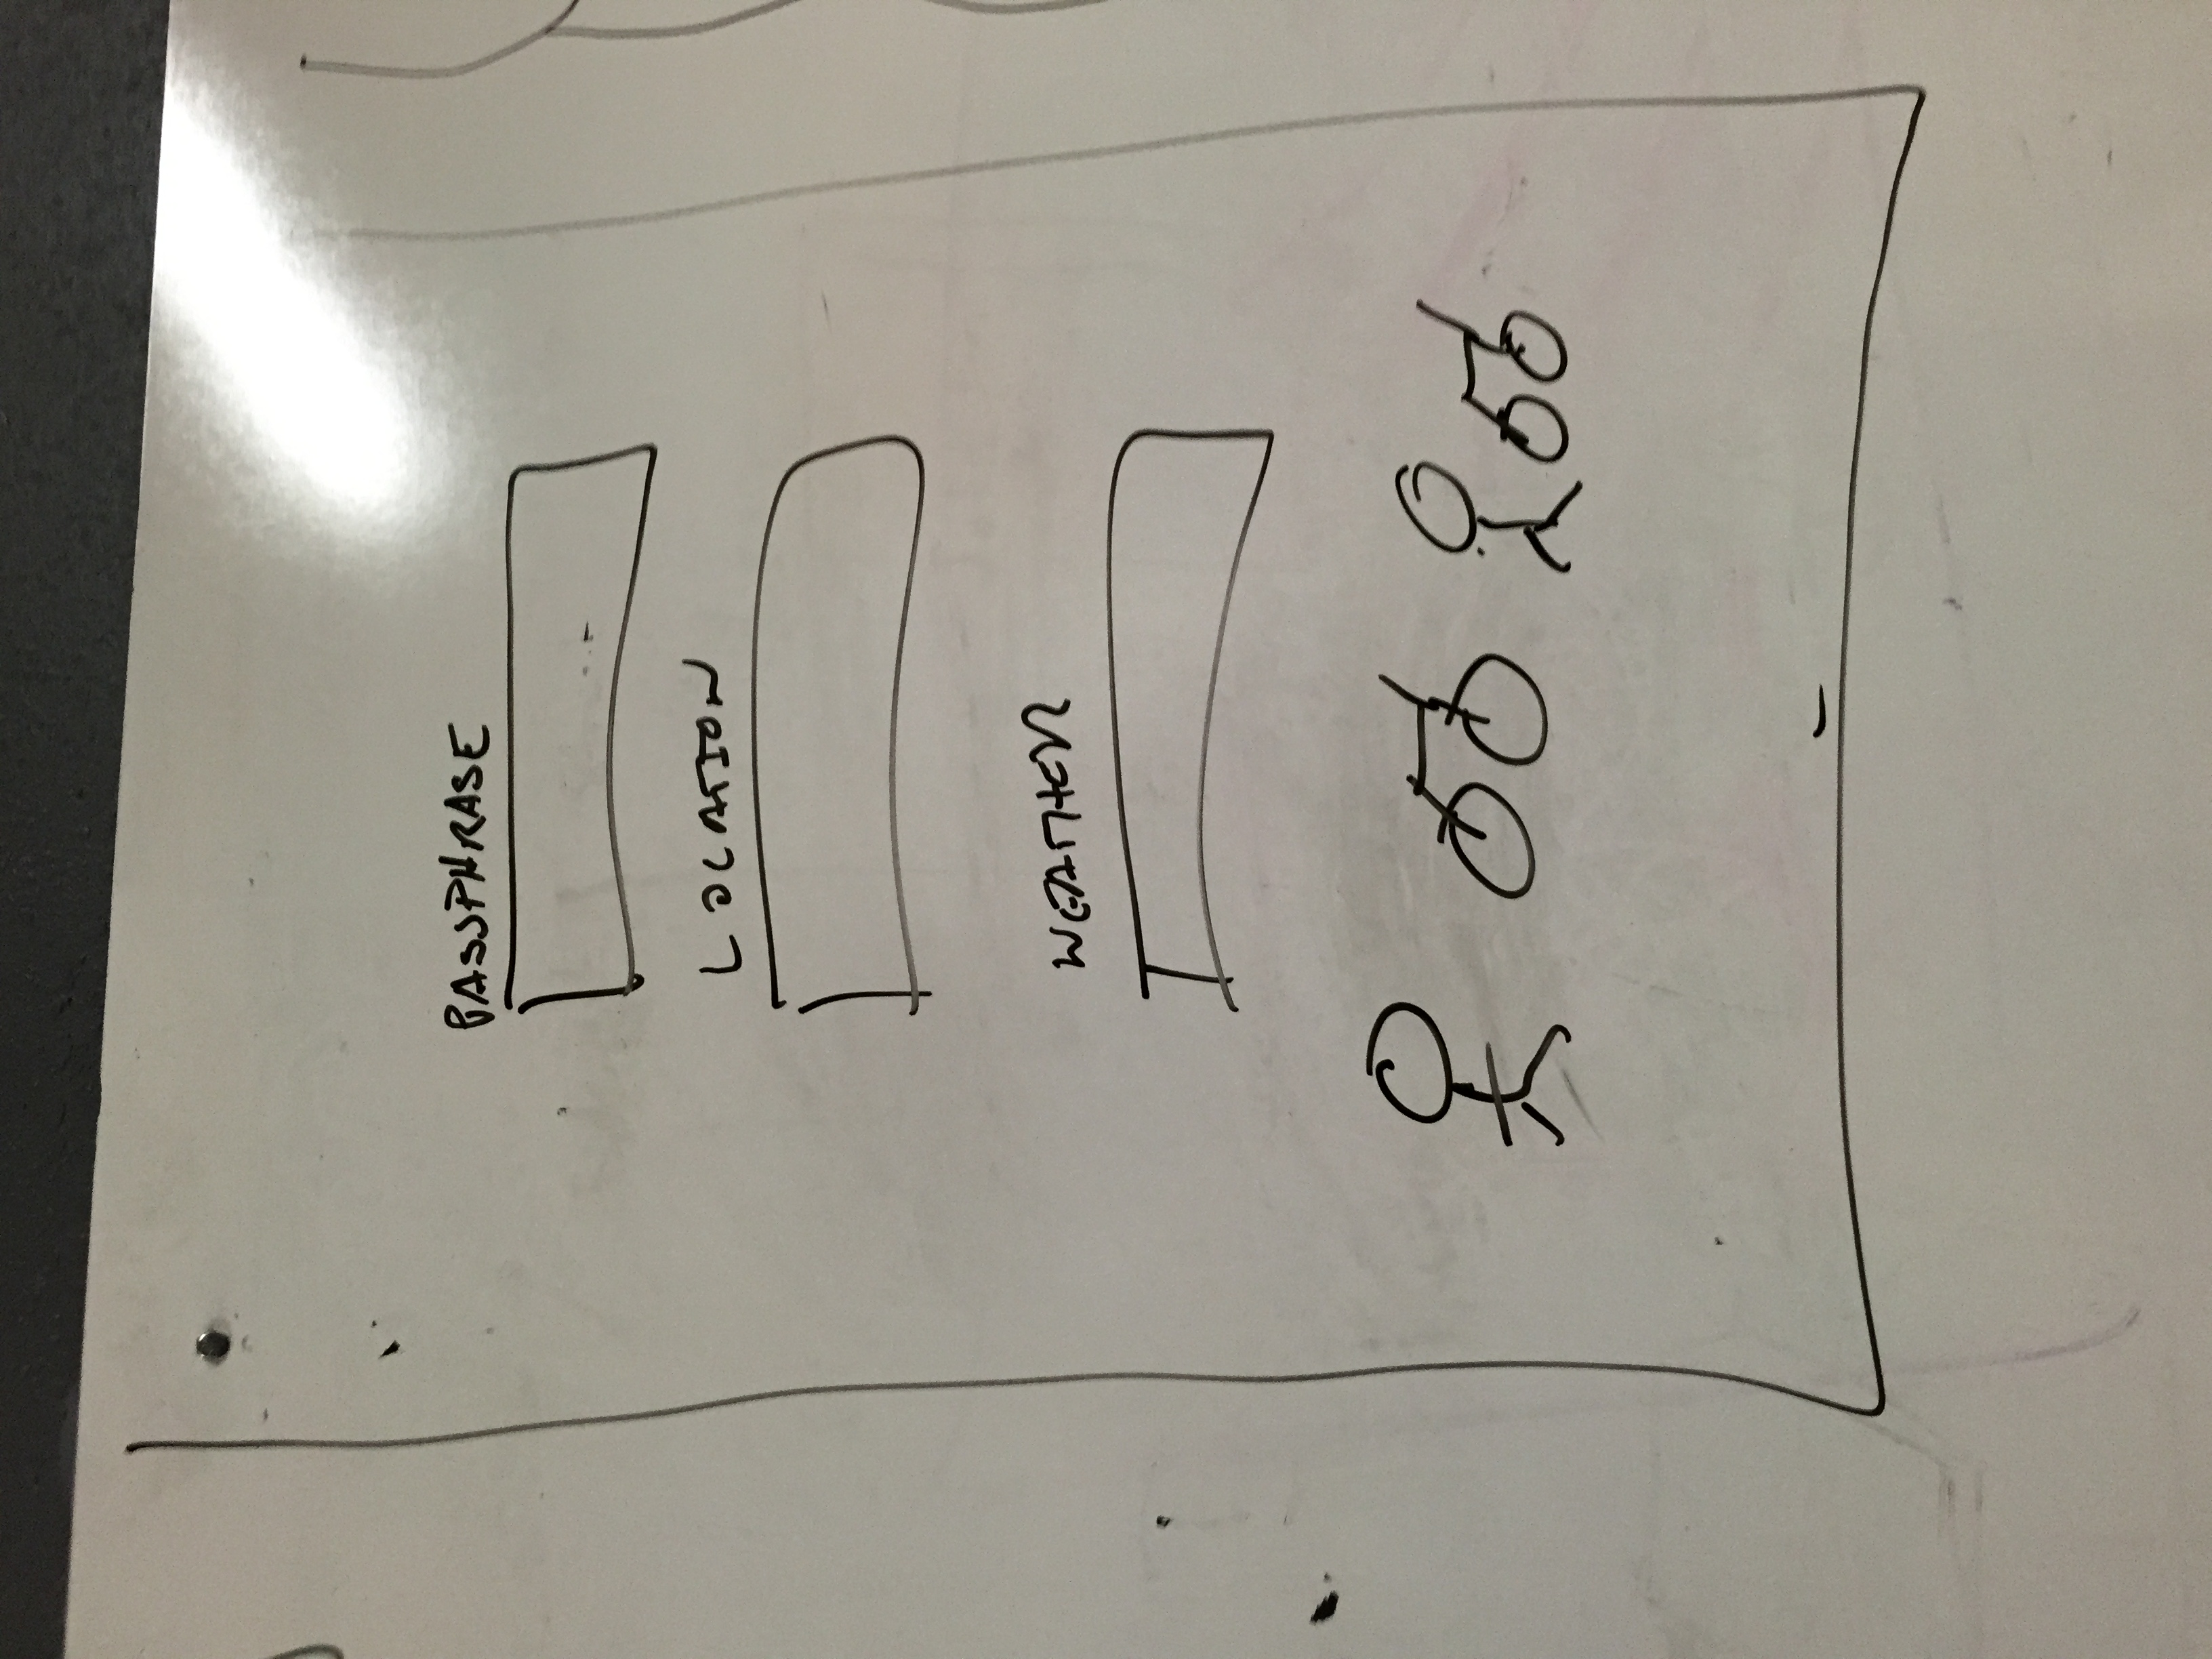 PASSPHRASE
LOCATION
WEATHER